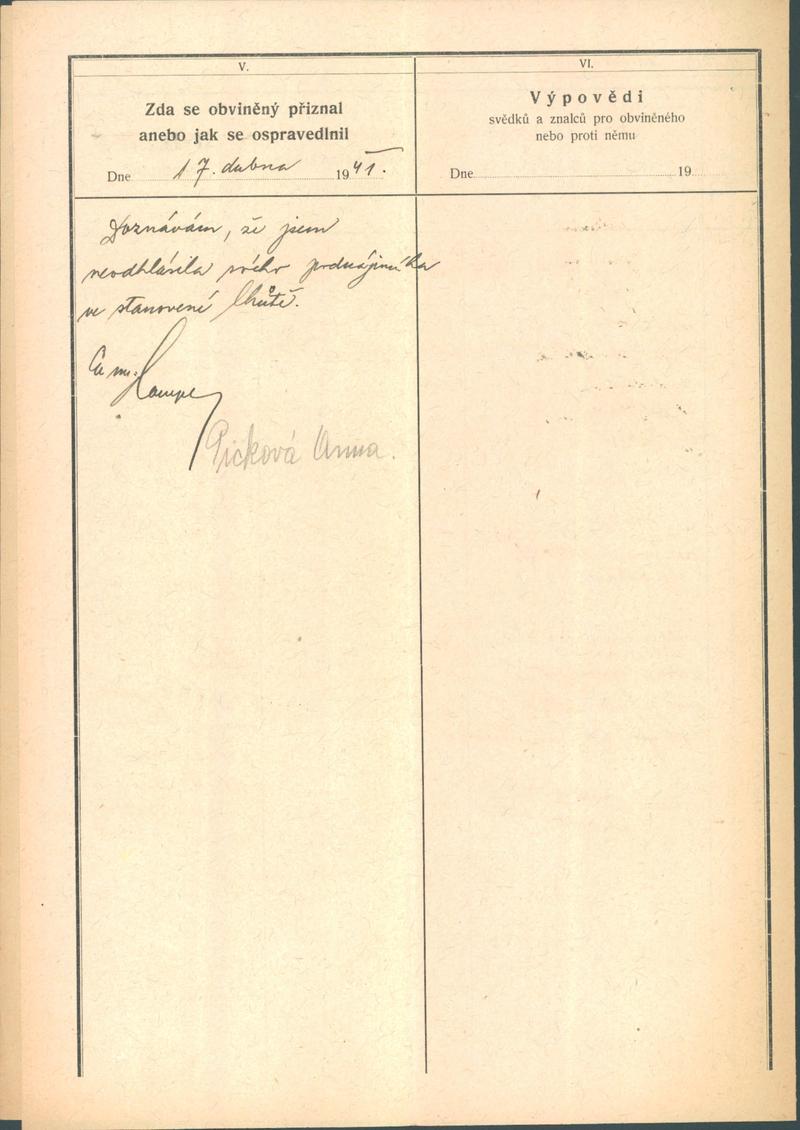 V.
Zda se obviněný přiznal
anebo jak se ospravedlnil
Dne 17. dubna 1941.
Doznávám, že jsem
neodhlásila svého podnájemníka
ve stanovené lhůtě.
Picková Anna.
VI.
Výpovědi
svědků a znalců pro obviněného
nebo proti němu
Dne 19